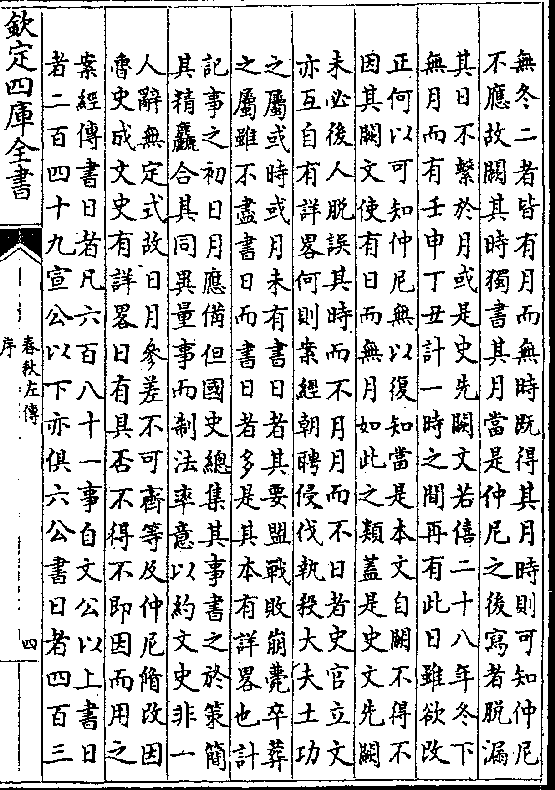 無冬二者皆有月而無時既得其月時則可知仲尼
不應故闕其時獨書其月當是仲尼之後寫者脱漏
其日不繫於月或是史先闕文若僖二十八年冬下
無月而有壬申丁丑計一時之間再有此日雖欲改
正何以可知仲尼無以復知當是本文自闕不得不
因其闕文使有日而無月如此之類蓋是史文先闕
未必後人脱誤其時而不月月而不日者史官立文
亦互自有詳畧何則案經朝聘侵伐執殺大夫土功
之屬或時或月未有書日者其要盟戰敗崩薨卒葬
之屬雖不盡書日而書日者多是其本有詳畧也計
記事之初日月應備但國史總集其事書之於策簡
其精麤合其同異量事而制法率意以約文史非一
人辭無定式故日月參差不可齊等及仲尼脩改因
魯史成文史有詳畧日有具否不得不即因而用之
案經傳書日者凡六百八十一事自文公以上書日
者二百四十九宣公以下亦俱六公書日者四百三
欽定四庫全書
春秋左傳
序
四